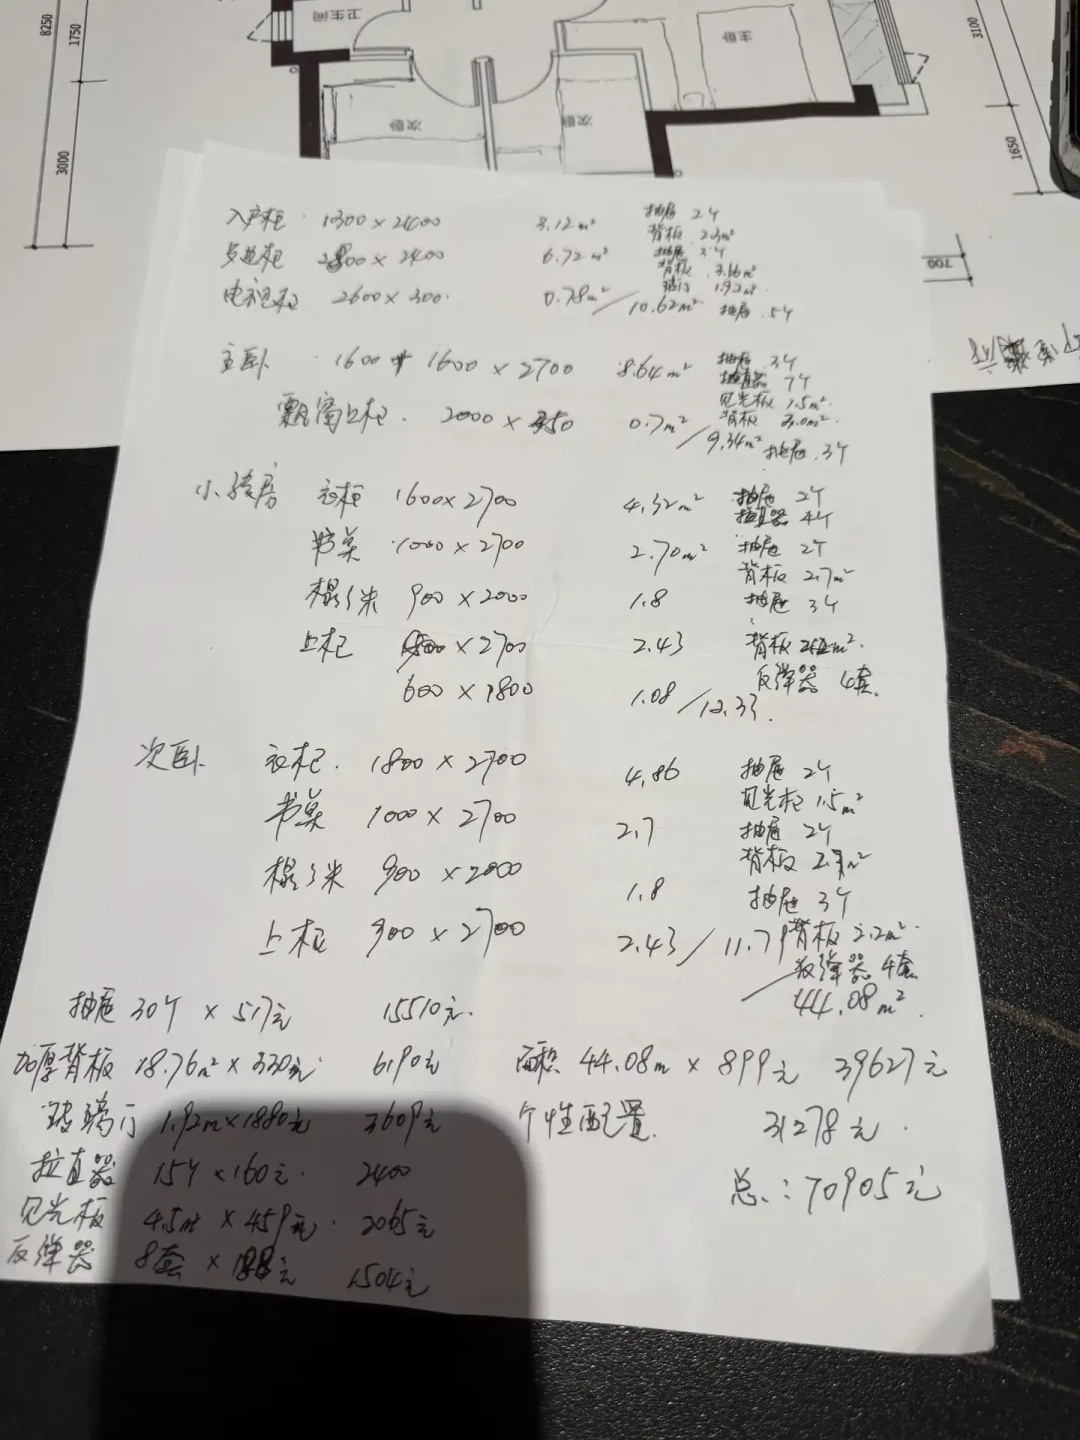 8250
1750
3000
卫生间
主卧
次卧
次卧
3100
1650
700
入户柜 1300×2400 3.12m² 抽屉 2个
背板 2.3m²
2800×2400 6.72m² 抽屉 3个
背板 3.66m²
玻门 1.92m²
电视柜 2600×300 0.78m² / 10.62m² 抽屉 5个
主卧 1600+1600×2700 8.64m² 抽屉 3个
拉直器 7个
见光板 1.5m²
飘窗上柜 2000×350 0.7m² 背板 3.0m²
/ 9.34m² 抽屉 3个
小孩房 衣柜 1600×2700 4.32m² 抽屉 2个
拉直器 4个
书桌 1000×2700 2.70m² 抽屉 2个
背板 2.7m²
榻榻米 900×2000 1.8 抽屉 3个
上柜 900×2700 2.43 背板 m²
反弹器 4套
600×1800 1.08 / 12.33
次卧 衣柜 1800×2700 4.86 抽屉 2个
见光柜 1.5m²
书桌 1000×2700 2.7 抽屉 2个
背板 m²
榻榻米 900×2000 1.8 抽屉 3个
上柜 900×2700 2.43 / 11.79 背板 2.2m²
反弹器 4套
44.08m²
抽屉 30个 × 517元 15510元
加厚背板 18.76m² × 330元 6190元 面积 44.08m × 899元 39627元
玻璃门 1.92m×1880元 3609元 个性配置 31278元
拉直器 15个×160元 2400 总:70905元
见光板 4.5m² × 459元 2065元
反弹器 8套 × 188元 1504元